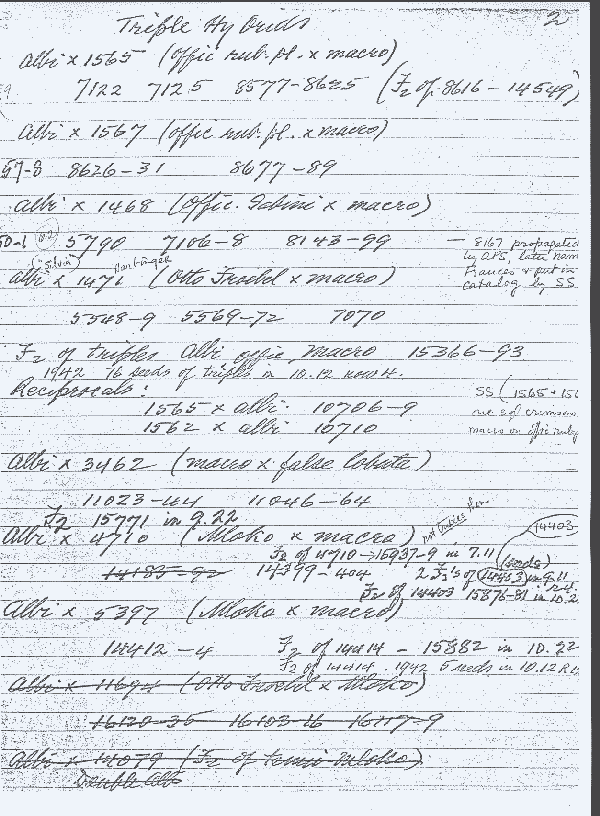 Triple Hybrids 2
Albi x 1565 (offic rub. pl. x macro)
7122 7125 8577-8625 (F2 of 8616 - 14549)
Albi x 1567 (offic rub. pl. x macro)
57-8 8626-31 8677-89
Albi x 1468 (Offic. Sabini x macro)
50-1 5790 7106-8 8143-99 — 8167 propagated
by OPS, later nam
Frances & put in
catalog by SS
("Silvia") Harbinger
Albi x 1471 (Otto Froebel x macro)
5548-9 5569-72 7070
F2 of triples Albi offic, macro 15366-93
1942 76 seeds of triples in 10.12 row H.
Reciprocals:
1565 x albi. 10706-9
1562 x albi 10710
SS (1565 + 156
rued crimson
macro on offic ruby
Albi x 3462 (macro x false lobata)
11023-44 11046-64
F2 15771 in 9.22
Albi x 4710 (Mloko x macro) not triples then.
14403
F2 of 4710 → 15937-9 in 7.11
14185-92 14399-404 2 F2's of 14403 in 9.11 (seeds)
F2 of 14403 15876-81 in 10.2
Albi x 5397 (Mloko x macro)
14412-4 F2 of 14414 - 15882 in 10.22
F2 of 14414. 1942 5 seeds in 10.12 R
Albi x 11694 (Otto Froebel x Mloko)
16120-35 16103-16 16117-9
Albi x 14079 (F2 of tenui-mloko)
Double Albi